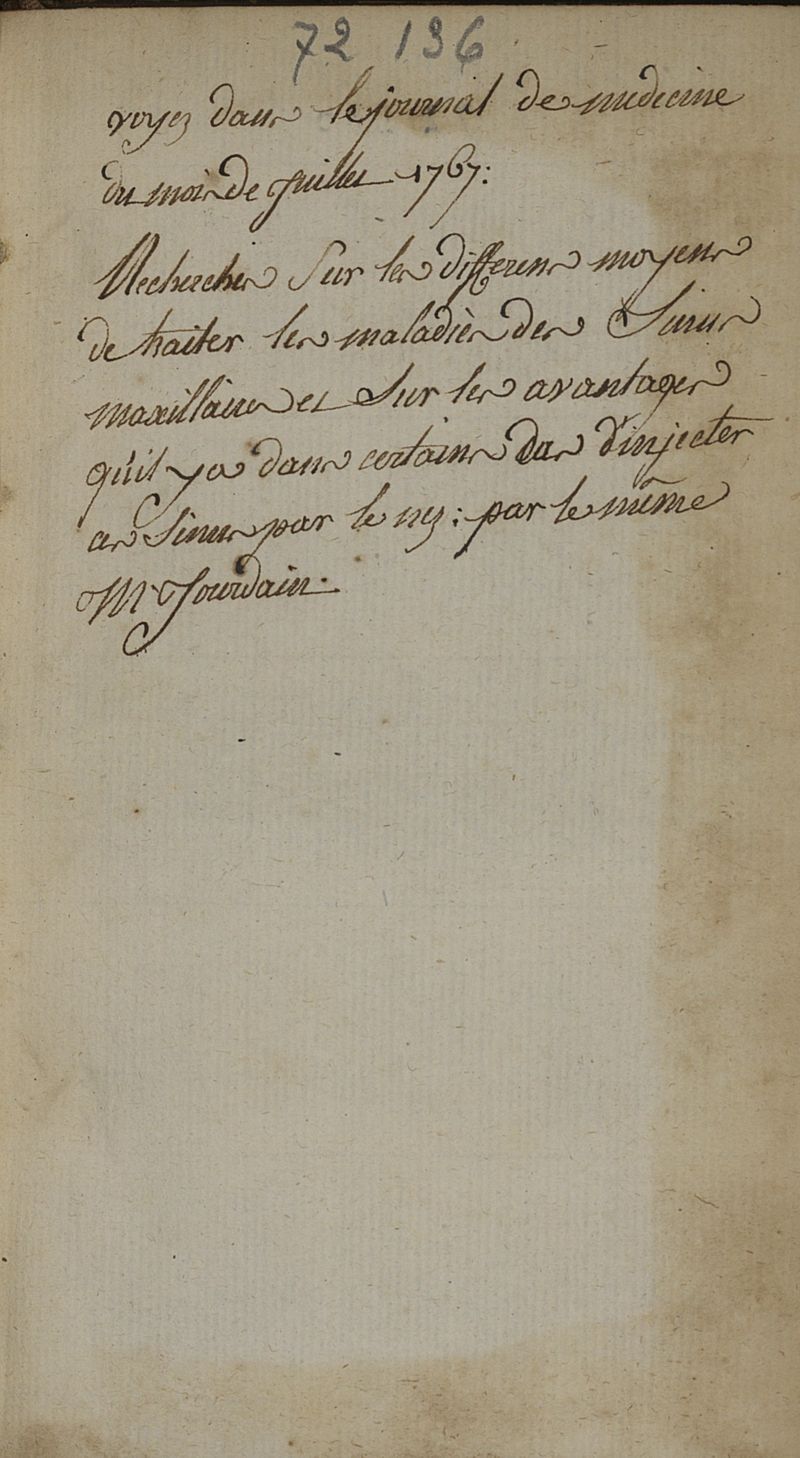 72 136
voyez dans le journal de medecine
du mois de juillet 1767:
Recherches Sur les differens moyens
de traiter les maladies des Sinus
maxillaires et Sur les avantages
qu'il y a dans certains cas d'injecter
ces Sinus par le nez: par le même
Mr Jourdain.